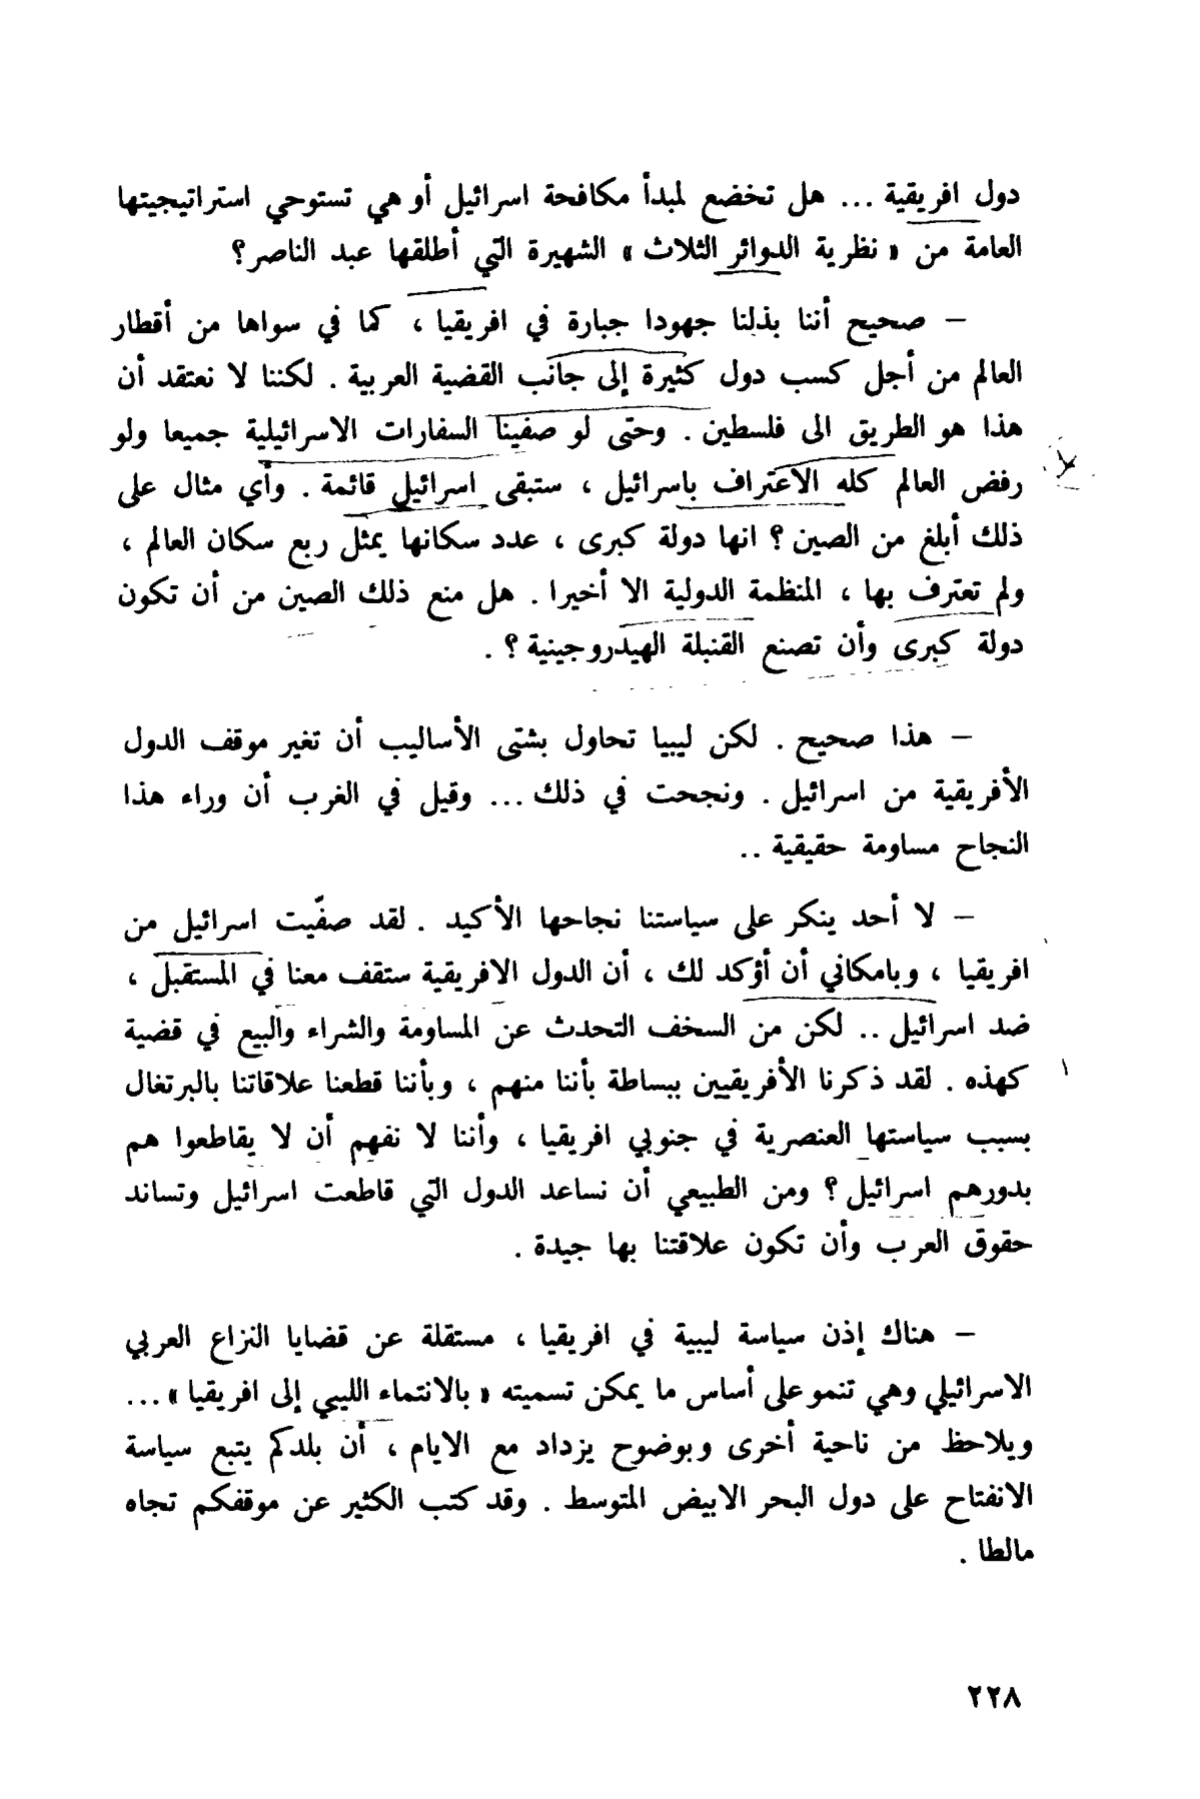 دول افريقية ... هل تخضع لمبدأ مكافحة اسرائيل أو هي تستوحي استراتيجيتها
العامة من « نظرية الدوائر الثلاث » الشهيرة التي أطلقها عبد الناصر؟
– صحيح أننا بذلنا جهودا جبارة في افريقيا ، كما في سواها من أقطار
العالم من أجل كسب دول كثيرة إلى جانب القضية العربية . لكننا لا نعتقد أن
هذا هو الطريق الى فلسطين . وحتى لو صفينا السفارات الاسرائيلية جميعا ولو
رفض العالم كله الاعتراف باسرائيل ، ستبقى اسرائيل قائمة . وأي مثال على
ذلك أبلغ من الصين ؟ انها دولة كبرى ، عدد سكانها يمثل ربع سكان العالم ،
ولم تعترف بها ، المنظمة الدولية الا أخيرا . هل منع ذلك الصين من أن تكون
دولة كبرى وأن تصنع القنبلة الهيدروجينية ؟ .
– هذا صحيح . لكن ليبيا تحاول بشتى الأساليب أن تغير موقف الدول
الأفريقية من اسرائيل . ونجحت في ذلك ... وقيل في الغرب أن وراء هذا
النجاح مساومة حقيقية ..
– لا أحد ينكر على سياستنا نجاحها الأكيد . لقد صفّيت اسرائيل من
افريقيا ، وبامكاني أن أؤكد لك ، أن الدول الافريقية ستقف معنا في المستقبل ،
ضد اسرائيل .. لكن من السخف التحدث عن المساومة والشراء والبيع في قضية
كهذه . لقد ذكرنا الأفريقيين ببساطة بأننا منهم ، وبأننا قطعنا علاقاتنا بالبرتغال
بسبب سياستها العنصرية في جنوبي افريقيا ، وأننا لا نفهم أن لا يقاطعوا هم
بدورهم اسرائيل ؟ ومن الطبيعي أن نساعد الدول التي قاطعت اسرائيل وتساند
حقوق العرب وأن تكون علاقتنا بها جيدة .
– هناك إذن سياسة ليبية في افريقيا ، مستقلة عن قضايا النزاع العربي
الاسرائيلي وهي تنمو على أساس ما يمكن تسميته « بالانتماء الليبي إلى افريقيا » ...
ويلاحظ من ناحية أخرى وبوضوح يزداد مع الايام ، أن بلدكم يتبع سياسة
الانفتاح على دول البحر الابيض المتوسط . وقد كتب الكثير عن موقفكم تجاه
مالطا .
٢٢٨